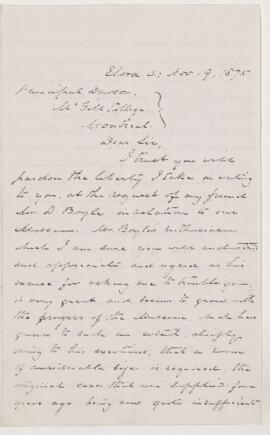 Elora, Nov 19, 1875
Principal Dawson,
McGill College,
Montreal.
Dear Sir,
I trust you will
pardon the liberty I take in writing
to you, at the request of my friend
Mr. D. Boyle, in relation to our
Museum. Mr. Boyle's enthusiasm
which I am sure you will understand
and appreciate and regard as his
excuse for asking me to trouble you,
is very great, and seems to grow with
the progress of the Museum, which has
grown to such an extent, chiefly
owing to his exertions, that a room
of considerable size is required, the
original case that was supplied four
years ago being now quite insufficient